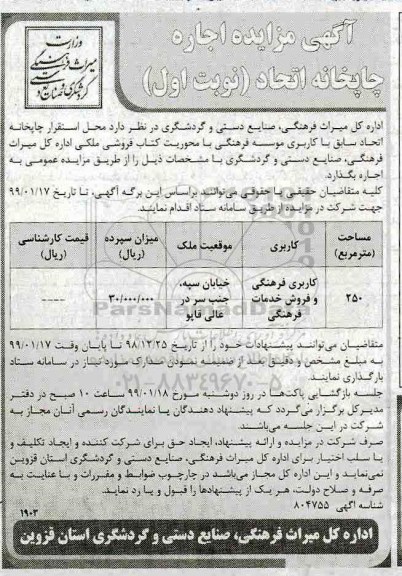 آگهی مزایده اجاره
چاپخانه اتحاد (نوبت اول)
وزارت
میراث فرهنگی
گردشگری و صنایع دستی
اداره کل میراث فرهنگی، صنایع دستی و گردشگری در نظر دارد محل استقرار چاپخانه
اتحاد سابق با کاربری موسسه فرهنگی با محوریت کتاب فروشی ملکی اداره کل میراث
فرهنگی، صنایع دستی و گردشگری با مشخصات ذیل را از طریق مزایده عمومی به
اجاره بگذارد.
کلیه متقاضیان حقیقی یا حقوقی می‌توانند براساس این برگه آگهی، تا تاریخ ۹۹/۰۱/۱۷
جهت شرکت در مزایده از طریق سامانه ستاد اقدام نمایند.
مساحت (مترمربع) کاربری موقعیت ملک میزان سپرده (ریال) قیمت کارشناسی (ریال)
۲۵۰ کاربری فرهنگی و فروش خدمات فرهنگی خیابان سپه، جنب سر در عالی قاپو ۳۰/۰۰۰/۰۰۰ ----
ParsNamadData
۰۲۱-۸۸۳۴۹۶۷۰-۵
متقاضیان می‌توانند پیشنهادات خود را از تاریخ ۹۸/۱۲/۲۵ تا پایان وقت ۹۹/۰۱/۱۷
به مبلغ مشخص و دقیق بعد از ضمیمه نمودن مدارک مورد نیاز در سامانه ستاد
بارگذاری نمایند.
جلسه بازگشایی پاکت‌ها در روز دوشنبه مورخ ۹۹/۰۱/۱۸ ساعت ۱۰ صبح در دفتر
مدیرکل برگزار می‌گردد که پیشنهاد دهندگان یا نمایندگان رسمی آنان مجاز به
شرکت در این جلسه می‌باشند.
صرف شرکت در مزایده و ارائه پیشنهاد، ایجاد حق برای شرکت کننده و ایجاد تکلیف و
یا سلب اختیار برای اداره کل میراث فرهنگی، صنایع دستی و گردشگری استان قزوین
نمی‌نماید و این اداره کل مجاز می‌باشد در چارچوب ضوابط و مقررات و با عنایت به
صرفه و صلاح دولت، هر یک از پیشنهادها را قبول و یا رد نماید.
شناسه آگهی ۸۰۴۷۵۵
۱۹۰۳
اداره کل میراث فرهنگی، صنایع دستی و گردشگری استان قزوین